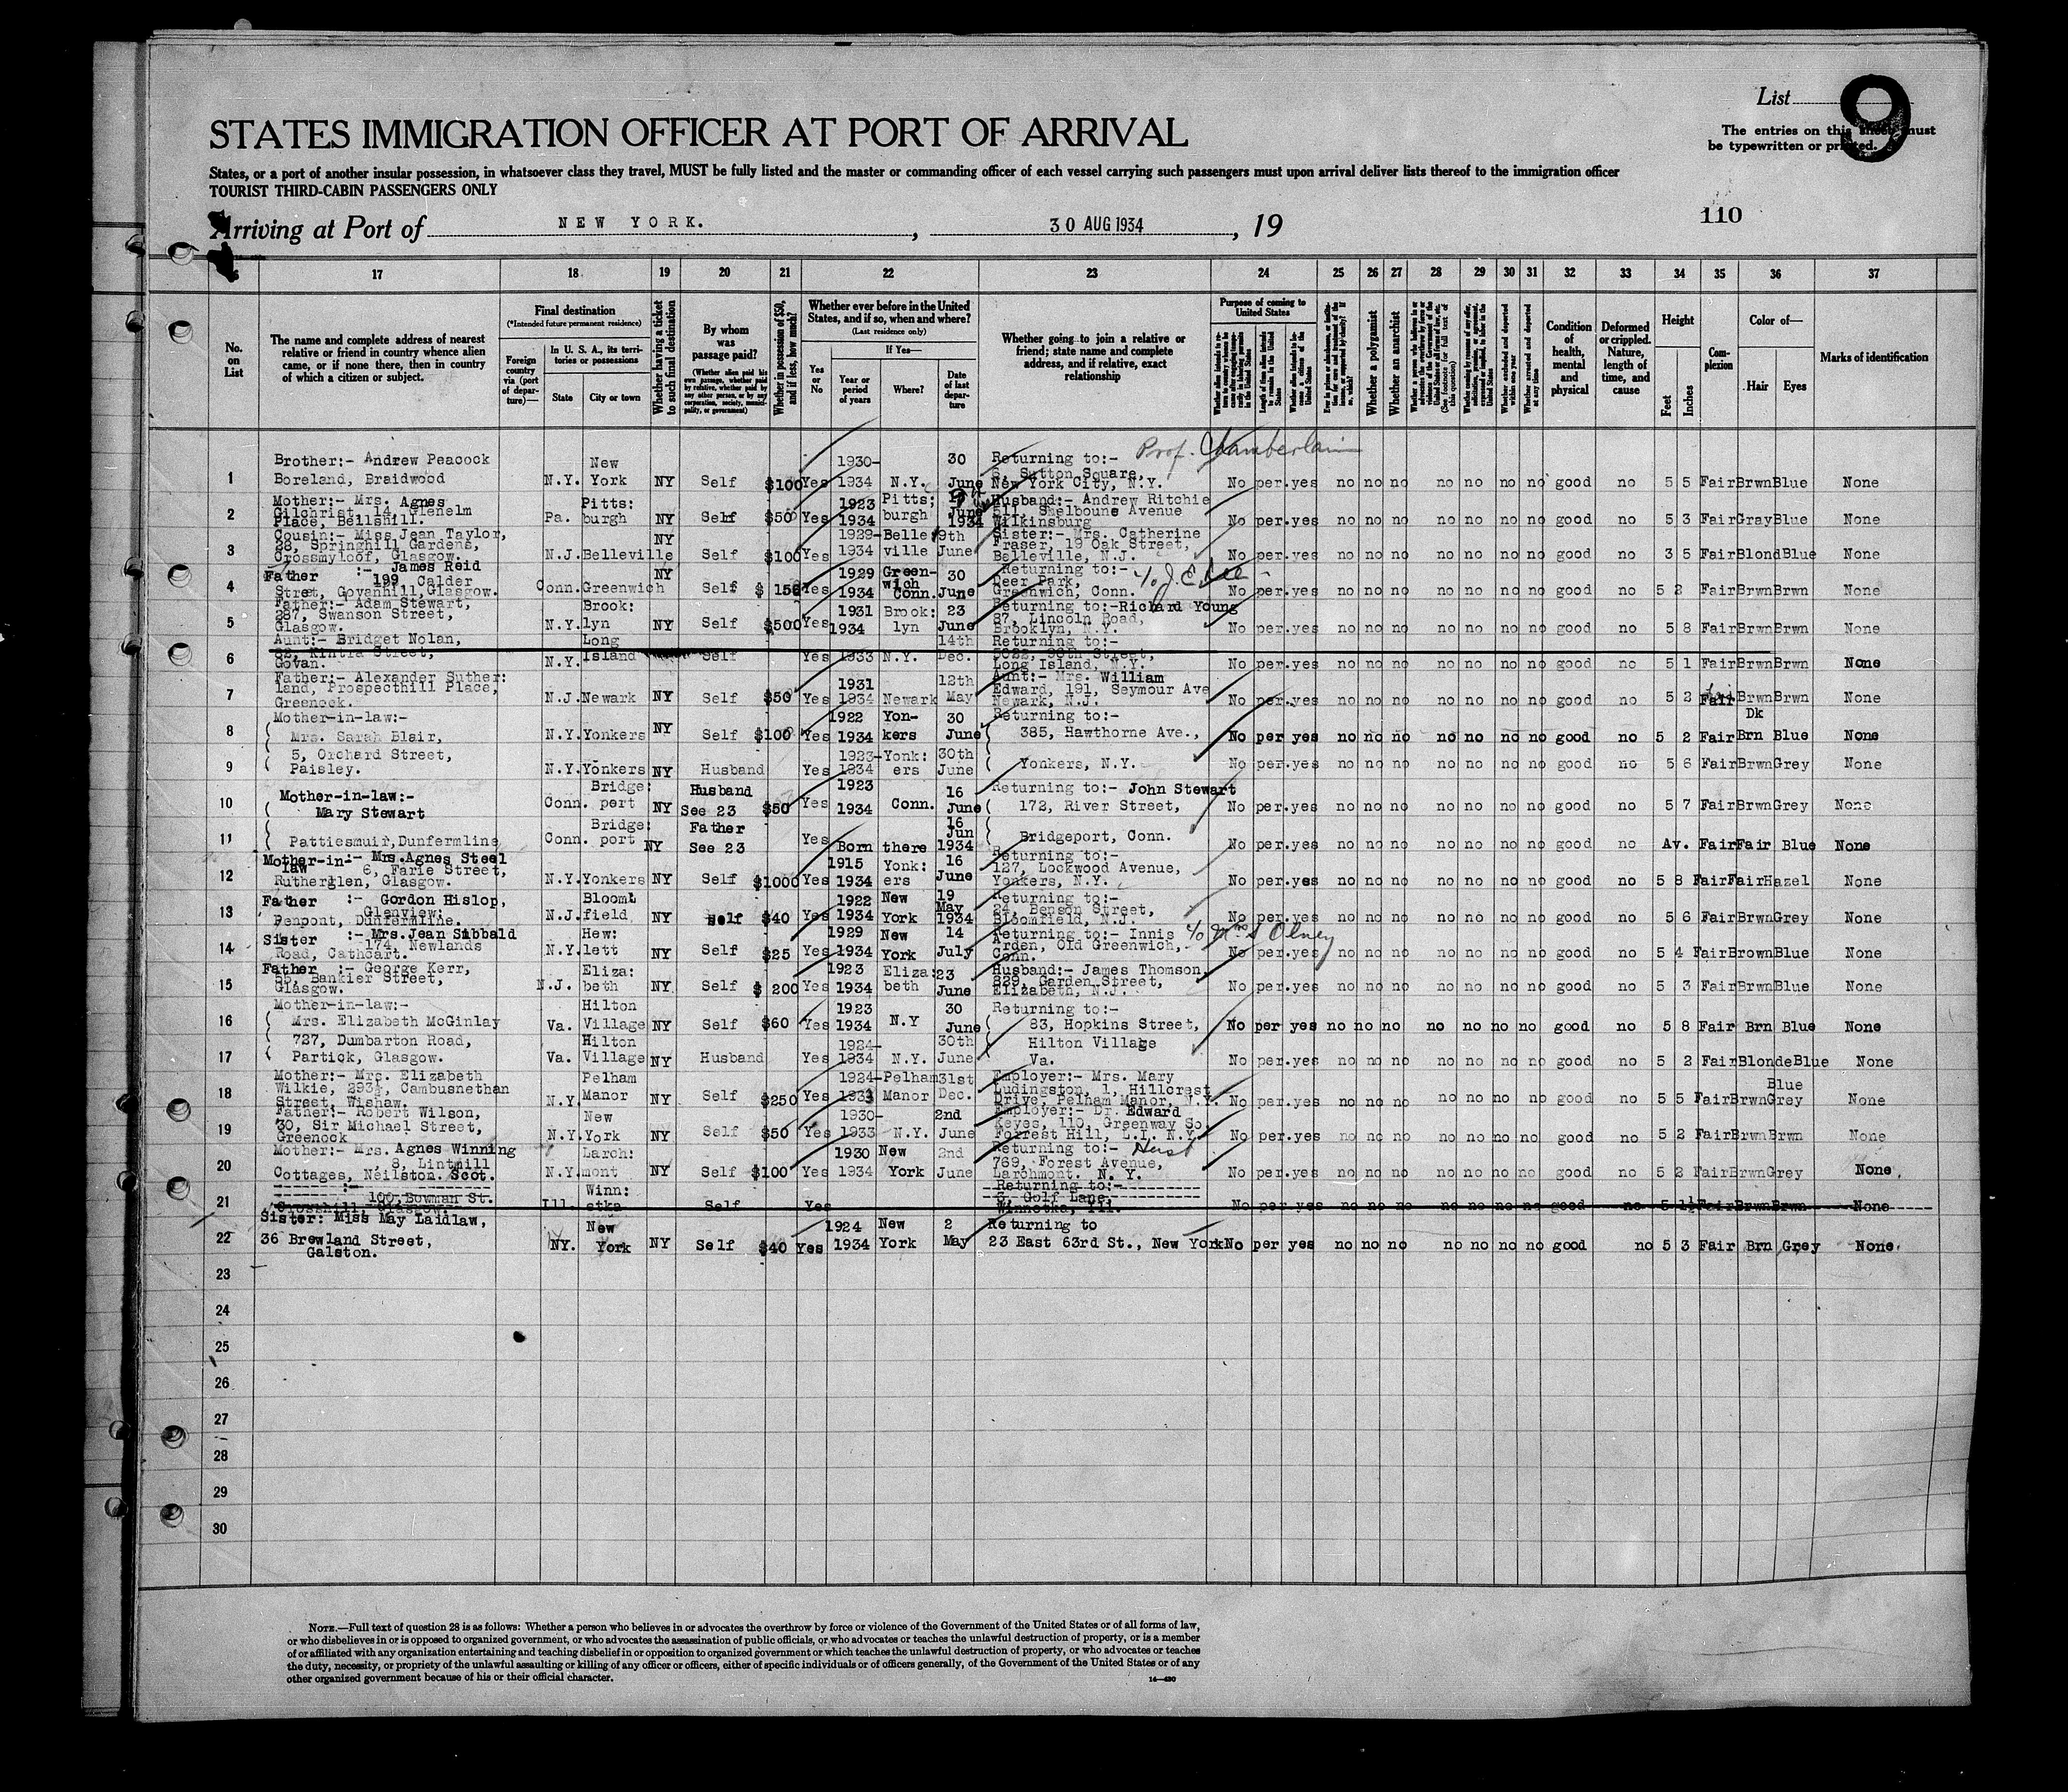 List
9
The entries on this sheet must
be typewritten or printed.
STATES IMMIGRATION OFFICER AT PORT OF ARRIVAL
States, or a port of another insular possession, in whatsoever class they travel, MUST be fully listed and the master or commanding officer of each vessel carrying such passengers must upon arrival deliver lists thereof to the immigration officer
TOURIST THIRD-CABIN PASSENGERS ONLY
110
Arriving at Port of NEW YORK. , 30 AUG 1934 , 19
17 18 19 20 21 22 23 24 25 26 27 28 29 30 31 32 33 34 35 36 37
No. on List
The name and complete address of nearest relative or friend in country whence alien came, or if none there, then in country of which a citizen or subject.
Final destination
(*Intended future permanent residence)
Foreign country via (port of departure)—
In U. S. A., its territories or possessions
State
City or town
Whether having a ticket to such final destination
By whom was passage paid?
(Whether alien paid his own passage, whether paid by relative, whether paid by any other person, or by any corporation, society, municipality, or government)
Whether in possession of $50, and if less, how much?
Whether ever before in the United States, and if so, when and where?
(Last residence only)
Yes or No
If Yes—
Year or period of years
Where?
Date of last departure
Whether going to join a relative or friend; state name and complete address, and if relative, exact relationship
Purpose of coming to United States
Whether a polygamist
Whether an anarchist
Condition of health, mental and physical
Deformed or crippled. Nature, length of time, and cause
Height
Feet
Inches
Complexion
Color of—
Hair
Eyes
Marks of identification
1 Brother:- Andrew Peacock Boreland, Braidwood N.Y. New York NY Self $100 Yes 1930-1934 N.Y. 30 June Returning to:- Prof. Chamberlain 6, Sutton Square, New York City, N.Y. No per. yes no no no no no no no good no 5 5 Fair Brwn Blue None
2 Mother:- Mrs. Agnes Gilchrist, 14, Glenelm Place, Bellshill. Pa. Pitts: burgh NY Self $50 Yes 1923 1934 Pitts; burgh June 1934 Husband:- Andrew Ritchie 511, Shelboune Avenue Wilkinsburg No per. yes no no no no no no no good no 5 3 Fair Gray Blue None
3 Cousin:- Miss Jean Taylor, 28, Springhill Gardens, Crossmyloof, Glasgow. N.J. Belleville NY Self $100 Yes 1929-1934 Belle ville 9th June Sister:- Mrs. Catherine Fraser, 19 Oak Street, Belleville, N.J. No per. yes no no no no no no no good no 3 5 Fair Blond Blue None
4 Father :- James Reid 199, Calder Stret, Govanhill, Glasgow. Conn. Greenwich NY Self $ 150 Yes 1929 1934 Green-wich Conn. 30 June Returning to:- Deer Park, Greenwich, Conn. No per. yes no no no no no no no good no 5 2 Fair Brwn Brwn None
5 Father:- Adam Stewart, 287, Swanson Street, Glasgow. N.Y. Brook: lyn NY Self $500 Yes 1931 1934 Brook: lyn 23 June Returning to:- Richard Young 87, Lincoln Road, Brooklyn, N.Y. No per. yes no no no no no no no good no 5 8 Fair Brwn Brwn None
6 Aunt:- Bridget Nolan, 82, Kintra Street, Govan. N.Y. Long Island Self Yes 1933 N.Y. 14th Dec. Returning to:- Long Island, N.Y. No per. yes no no no no no no no good no 5 1 Fair Brwn Brwn None
7 Father:- Alexander Suther: land, Prospecthill Place, Greenock. N.J. Newark NY Self $50 Yes 1931 1934 Newark 12th May Aunt:- Mrs. William Edward, 191, Seymour Ave Newark, N.J. No per. yes no no no no no no no good no 5 2 Fair Brwn Brwn None
8 Mother-in-law:- Mrs. Sarah Blair, N.Y. Yonkers NY Self $100 Yes 1922 1934 Yon-kers 30 June Returning to:- 385, Hawthorne Ave., No per yes no no no no no no no good no 5 2 Fair Dk Brn Blue None
9 5, Orchard Street, Paisley. N.Y. Yonkers NY Husband Yes 1923-1934 Yonk: ers 30th June Yonkers, N.Y. No per. yes no no no no no no no good no 5 6 Fair Brwn Grey None
10 Mother-in-law:- Mary Stewart Conn. Bridge: port NY Husband See 23 $50 Yes 1923 1934 Conn. 16 June Returning to:- John Stewart 172, River Street, No per. yes no no no no no no no good no 5 7 Fair Brwn Grey None
11 Pattiesmuir, Dunfermline Conn. Bridge: port NY Father See 23 Yes Born there 16 Jun 1934 Bridgeport, Conn. No per. yes no no no no no no no good no Av. Fair Fair Blue None
12 Mother-in-law :- Mrs. Agnes Steel 6, Farie Street, Rutherglen, Glasgow. N.Y. Yonkers NY Self $1000 Yes 1915 1934 Yonk: ers 16 June Returning to:- 127, Lockwood Avenue, Yonkers, N.Y. No per. yes no no no no no no no good no 5 8 Fair Fair Hazel None
13 Father :- Gordon Hislop, Glenview, Penpont, Dunfermline. N.J. Bloom: field NY Self $40 Yes 1922 1934 New York 19 May 1934 Returning to:- 24, Benson Street, Bloomfield, N.J. No per. yes no no no no no no no good no 5 6 Fair Brwn Grey None
14 Sister :- Mrs. Jean Sibbald 174, Newlands Road, Cathcart. N.Y. Hew: lett NY Self $25 Yes 1929 1934 New York 14 July Returning to:- Innis c/o Mrs Olney Arden, Old Greenwich, Conn. No per. yes no no no no no no no good no 5 4 Fair Brown Blue None
15 Father :- George Kerr, 55, Bankier Street, Glasgow. N.J. Eliza: beth NY Self $ 200 Yes 1923 1934 Eliza: beth 23 June Husband:- James Thomson, 829, Garden Street, Elizabeth, N.J. No per. yes no no no no no no no good no 5 3 Fair Brwn Blue None
16 Mother-in-law:- Mrs. Elizabeth McGinlay Va. Hilton Village NY Self $60 Yes 1923 1934 N.Y 30 June Returning to:- 83, Hopkins Street, No per yes no no no no no no no good no 5 8 Fair Brn Blue None
17 727, Dumbarton Road, Partick, Glasgow. Va. Hilton Village NY Husband Yes 1924-1934 N.Y. 30th June Hilton Village Va. No per. yes no no no no no no no good no 5 2 Fair Blonde Blue None
18 Mother:- Mrs. Elizabeth Wilkie, 293½, Cambusnethan Street, Wishaw. N.Y. Pelham Manor NY Self $250 Yes 1924-1933 Pelham Manor 31st Dec. Employer:- Mrs. Mary Ludingston, 1, Hillcrest Drive, Pelham Manor, N.Y. No per. yes no no no no no no no good no 5 5 Fair Brwn Blue Grey None
19 Father:- Robert Wilson, 30, Sir Michael Street, Greenock N.Y. New York NY Self $50 Yes 1930-1933 N.Y. 2nd June Employer:- Dr. Edward Keyes, 110, Greenway So. Forrest Hill, L.I. N.Y. No per. yes no no no no no no no good no 5 2 Fair Brwn Brwn None
20 Mother:- Mrs. Agnes Winning 8, Lintmill Cottages, Neilston. Scot. N.Y. Larch: mont NY Self $100 Yes 1930 1934 New York 2nd June Returning to:- 769, Forest Avenue, Larchmont. N. Y. No per. yes no no no no no no no good no 5 2 Fair Brwn Grey None
21 100, Bowman St. Crosshill, Glasgow. Ill. Winn: etka Self Yes Returning to:- 3, Golf Lane, Winnetka, Ill. No per. yes no no no no no no no good no 5 1½ Fair Brwn Brwn None
22 Sister: Miss May Laidlaw, 36 Brewland Street, Galston. NY. New York NY Self $40 Yes 1924 1934 New York 2 May Returning to 23 East 63rd St., New York No per yes no no no no no no no good no 5 3 Fair Brn Grey None
23
24
25
26
27
28
29
30
NOTE.—Full text of question 28 is as follows: Whether a person who believes in or advocates the overthrow by force or violence of the Government of the United States or of all forms of law,
or who disbelieves in or is opposed to organized government, or who advocates the assassination of public officials, or who advocates or teaches the unlawful destruction of property, or is a member
of or affiliated with any organization entertaining and teaching disbelief in or opposition to organized government or which teaches the unlawful destruction of property, or who advocates or teaches
the duty, necessity, or propriety of the unlawful assaulting or killing of any officer or officers, either of specific individuals or of officers generally, of the Government of the United States or of any
other organized government because of his or their official character.
14—430